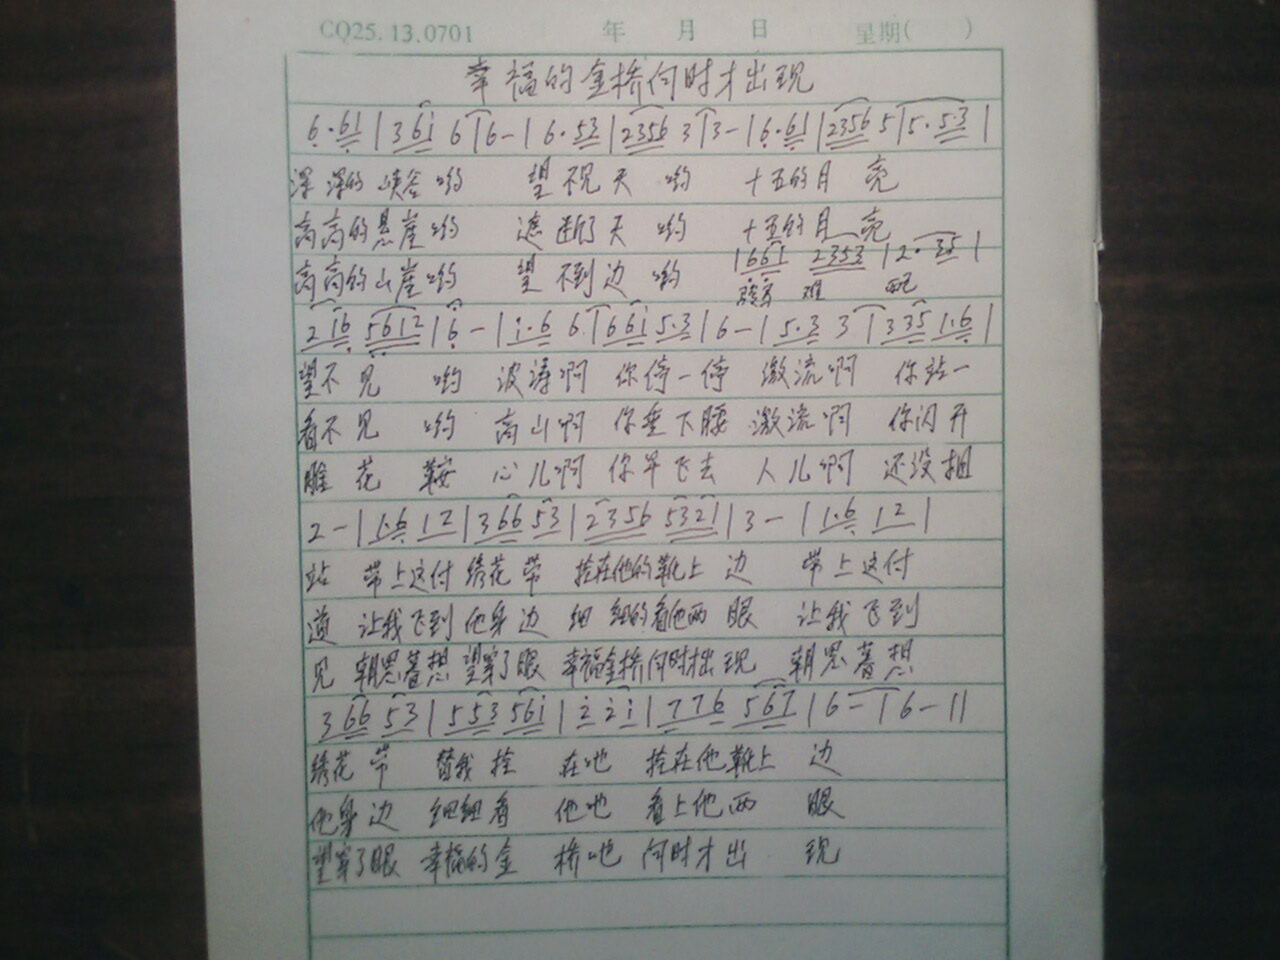 CQ25.13.0701 年 月 日 星期( )
幸福的金桥何时才出现
6·61|361 6|6-|6·53|2356 3|3-|6·61|2356 5|5·5·3|
深深的峡谷哟 望不见天哟 十五的月亮
高高的悬崖哟 遮断了天哟 十五的月亮
1661 2353|2·35|
高高的山崖哟 望不到边哟 骏马 难 配
2 16 5612|6-|i·6 6|66i 5·3|6-|5·3 3|335 1·6|
望不见 哟 波涛啊 你停一停 激流啊 你站一
看不见 哟 高山啊 你垂下腰 激流啊 你闪开
雕花 鞍 心儿啊 你早飞去 人儿啊 还没相
2-|1·6 12|366 53|2356 5321|3-|1·6 12|
站 带上这付绣花带 拴在他的靴上边 带上这付
道 让我飞到他身边 细细的看他两眼 让我飞到
见 朝思暮想望穿了眼 幸福金桥何时才出现 朝思暮想
3 66 53|553 56i|2 2i|776 567|6-|6-||
绣花带 替我拴 在吔 拴在他靴上 边
他身边 细细看 他吔 看上他两 眼
望穿了眼 幸福的金 桥吔 何时才出 现